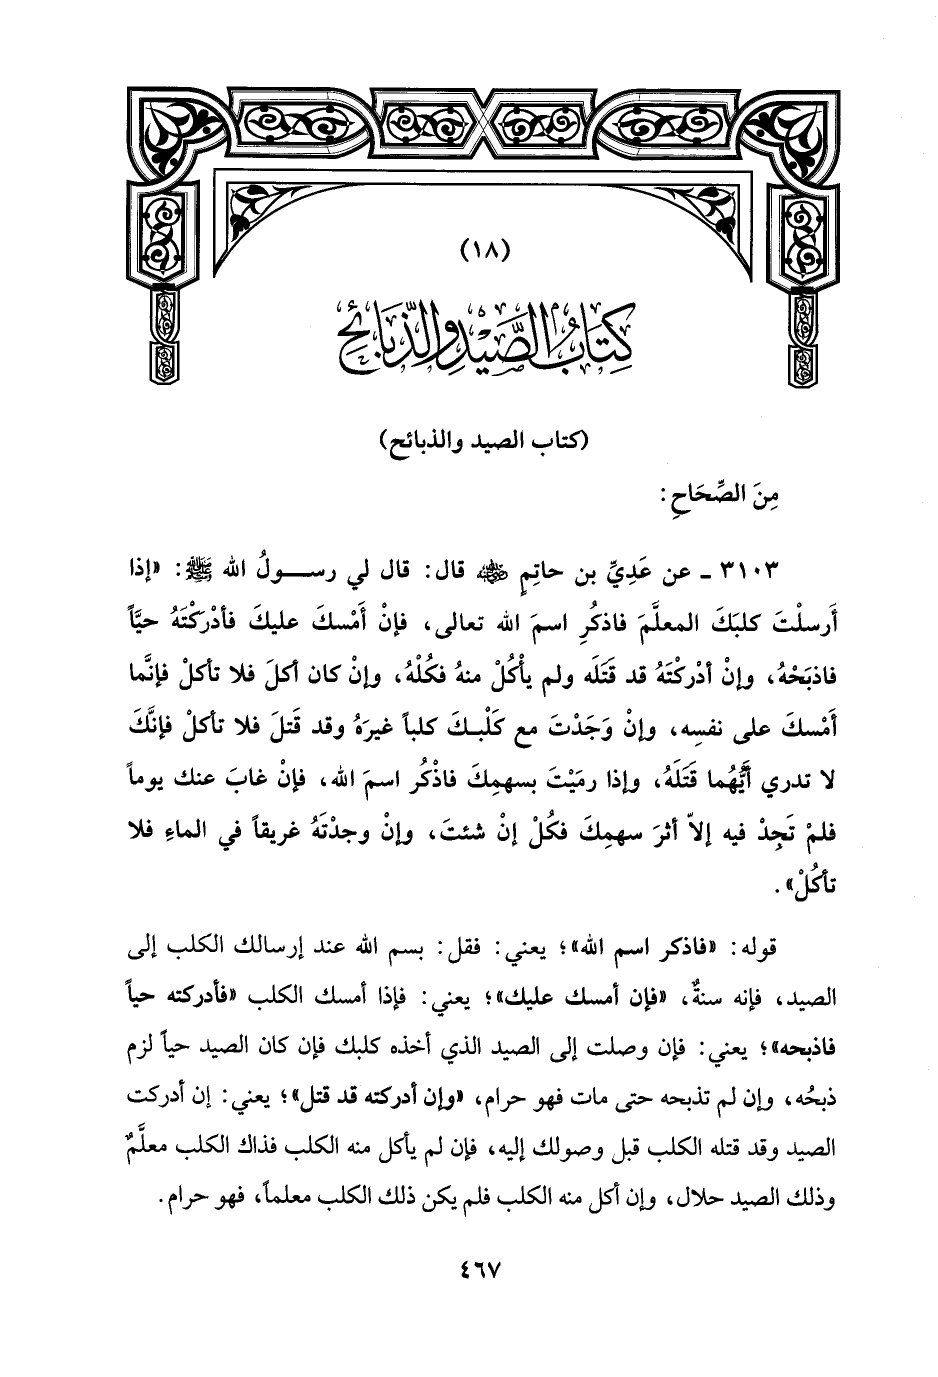 (١٨)
كِتَابُ الصَّيْدِ وَالذَّبَائِحِ
(كتاب الصيد والذبائح)
مِنَ الصِّحَاحِ:
٣١٠٣ ـ عن عَدِيِّ بن حاتِمٍ ﵁ قال: قال لي رســولُ الله ﷺ: «إذا
أَرسلْتَ كلبَكَ المعلَّمَ فاذكُرِ اسمَ الله تعالى، فإنْ أَمْسكَ عليكَ فأدْرَكْتَهُ حيَّاً
فاذبَحْهُ، وإنْ أدْركْتَهُ قد قَتَلَه ولم يأْكُلْ منهُ فكُلْهُ، وإنْ كان أكلَ فلا تأكلْ فإنَّما
أَمْسكَ على نفسِه، وإنْ وَجَدْتَ مع كَلْبِـكَ كلباً غيرَهُ وقد قَتلَ فلا تأكلْ فإنكَ
لا تدري أَيُّهُما قَتَلَهُ، وإذا رميْتَ بسهمِكَ فاذْكُر اسمَ الله، فإنْ غابَ عنك يوماً
فلمْ تَجِدْ فيه إلاّ أثرَ سهمِكَ فكُلْ إنْ شئتَ، وإنْ وجدْتَهُ غريقاً في الماءِ فلا
تأكُلْ».
قوله: «فاذكر اسم الله»؛ يعني: فقل: بسم الله عند إرسالك الكلب إلى
الصيد، فإنه سنةٌ، «فإن أمسك عليك»؛ يعني: فإذا أمسك الكلب «فأدركته حياً
فاذبحه»؛ يعني: فإن وصلت إلى الصيد الذي أخذه كلبك فإن كان الصيد حياً لزم
ذبحُه، وإن لم تذبحه حتى مات فهو حرام، «وإن أدركته قد قتل»؛ يعني: إن أدركت
الصيد وقد قتله الكلب قبل وصولك إليه، فإن لم يأكل منه الكلب فذاك الكلب معلَّمٌ
وذلك الصيد حلال، وإن أكل منه الكلب فلم يكن ذلك الكلب معلماً، فهو حرام.
٤٦٧